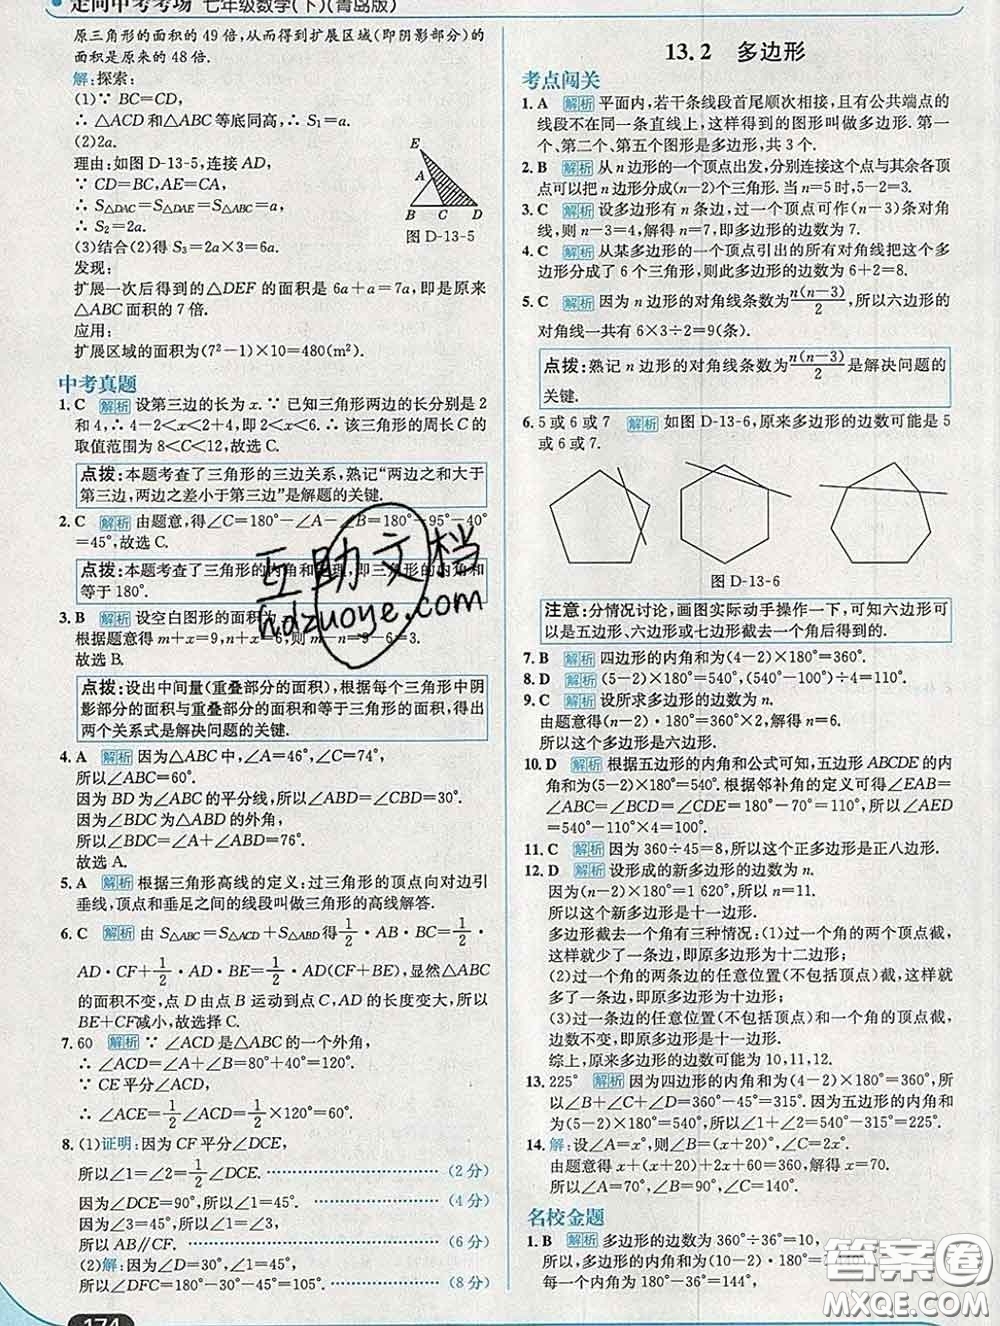 走向中考考场 七年级数学(下)(青岛版)
原三角形的面积的49倍,从而得到扩展区域(即阴影部分)的
面积是原来的48倍.
解:探索:
(1)∵ BC=CD,
∴ △ACD和△ABC等底同高,∴ S₁=a.
(2)2a.
理由:如图D-13-5,连接AD,
∵ CD=BC,AE=CA,
∴ S△DAC=S△DAE=S△ABC=a,
∴ S₂=2a.
(3)结合(2)得 S₃=2a×3=6a.
E
A
B C D
图 D-13-5
发现:
扩展一次后得到的△DEF的面积是6a+a=7a,即是原来
△ABC面积的7倍.
应用:
扩展区域的面积为(7²-1)×10=480(m²).
中考真题
1. C 解析 设第三边的长为x.∵ 已知三角形两边的长分别是2
和4,∴ 4-2<x<2+4,即2<x<6.∴ 该三角形的周长C的
取值范围为8<C<12,故选C.
点拨:本题考查了三角形的三边关系,熟记“两边之和大于
第三边,两边之差小于第三边”是解题的关键.
2. C 解析 由题意,得∠C=180°-∠A-∠B=180°-95°-40°
=45°,故选C.
点拨:本题考查了三角形的内角和定理,即三角形的内角和
等于180°.
3. B 解析 设空白图形的面积为
根据题意得m+x=9,n+x=6,则m-n=9-6=3.
故选B.
点拨:设出中间量(重叠部分的面积),根据每个三角形中阴
影部分的面积与重叠部分的面积和等于三角形的面积,得出
两个关系式是解决问题的关键.
4. A 解析 因为△ABC中,∠A=46°,∠C=74°,
所以∠ABC=60°.
因为BD为∠ABC的平分线,所以∠ABD=∠CBD=30°.
因为∠BDC为△ABD的外角,
所以∠BDC=∠A+∠ABD=76°.
故选A.
5. A 解析 根据三角形高线的定义:过三角形的顶点向对边引
垂线,顶点和垂足之间的线段叫做三角形的高线解答.
6. C 解析 由 S△ABC=S△ACD+S△ABD得1/2·AB·BC=1/2·
AD·CF+1/2·AD·BE=1/2·AD(CF+BE),显然△ABC
的面积不变,点D由点B运动到点C,AD的长度变大,所以
BE+CF减小,故选择C.
7. 60 解析 ∵ ∠ACD是△ABC的一个外角,
∴ ∠ACD=∠A+∠B=80°+40°=120°.
∵ CE平分∠ACD,
∴ ∠ACE=1/2∠ACD=1/2×120°=60°.
8. (1)证明:因为CF平分∠DCE,
所以∠1=∠2=1/2∠DCE. (2分)
因为∠DCE=90°,所以∠1=45°. (4分)
因为∠3=45°,所以∠1=∠3,
所以AB∥CF. (6分)
(2)解:因为∠D=30°,∠1=45°,
所以∠DFC=180°-30°-45°=105°. (8分)
174
13.2 多边形
考点闯关
1. A 解析 平面内,若干条线段首尾顺次相接,且有公共端点的
线段不在同一条直线上,这样得到的图形叫做多边形.第一
个、第二个、第五个图形是多边形,共3个.
2. B 解析 从n边形的一个顶点出发,分别连接这个点与其余各顶
点可以把n边形分成(n-2)个三角形.当n=5时,5-2=3.
3. C 解析 设多边形有n条边,过一个顶点可作(n-3)条对角
线,则n-3=4,解得n=7,即多边形的边数为7.
4. C 解析 从某多边形的一个顶点引出的所有对角线把这个多
边形分成了6个三角形,则此多边形的边数为6+2=8.
5. C 解析 因为n边形的对角线条数为n(n-3)/2,所以六边形的
对角线一共有6×3÷2=9(条).
点拨:熟记n边形的对角线条数为n(n-3)/2是解决问题的
关键.
6. 5或6或7 解析 如图D-13-6,原来多边形的边数可能是5
或6或7.
图 D-13-6
注意:分情况讨论,画图实际动手操作一下,可知六边形可
以是五边形、六边形或七边形截去一个角后得到的.
7. B 解析 四边形的内角和为(4-2)×180°=360°.
8. D 解析 (5-2)×180°=540°,(540°-100°)÷4=110°.
9. C 解析 设所求多边形的边数为n.
由题意得(n-2)·180°=360°×2,解得n=6.
所以这个多边形是六边形.
10. D 解析 根据五边形的内角和公式可知,五边形ABCDE的内
角和为(5-2)×180°=540°.根据邻补角的定义可得∠EAB=
∠ABC=∠BCD=∠CDE=180°-70°=110°,所以∠AED
=540°-110°×4=100°.
11. C 解析 因为360÷45=8,所以这个正多边形是正八边形.
12. D 解析 设形成的新多边形的边数为n.
因为(n-2)×180°=1 620°,所以n=11.
所以这个新多边形是十一边形.
多边形截去一个角有三种情况:(1)过一个角的两个顶点截,
这样就少了一条边,即原多边形为十二边形;
(2)过一个角的两条边的任意位置(不包括顶点)截,这样就
多了一条边,即原多边形为十边形;
(3)过一条边的任意位置(不包括顶点)和一个角的顶点截,
边数不变,即原多边形是十一边形.
综上,原来多边形的边数可能为10,11,12.
13. 225° 解析 因为四边形的内角和为(4-2)×180°=360°,所
以∠B+∠C+∠D=360°-45°=315°.因为五边形的内角
和为(5-2)×180°=540°,所以∠1+∠2=540°-315°=225°.
14. 解:设∠A=x°,则∠B=(x+20)°,∠C=2x°.
由题意得x+(x+20)+2x+60=360,解得x=70.
所以∠A=70°,∠B=90°,∠C=140°.
名校金题
1. B 解析 多边形的边数为360°÷36°=10,
所以多边形的内角和为(10-2)×180°=1 440°,
每一个内角为180°-36°=144°,
互助文档
hdzuoye.com
答案圈
MXQE.COM